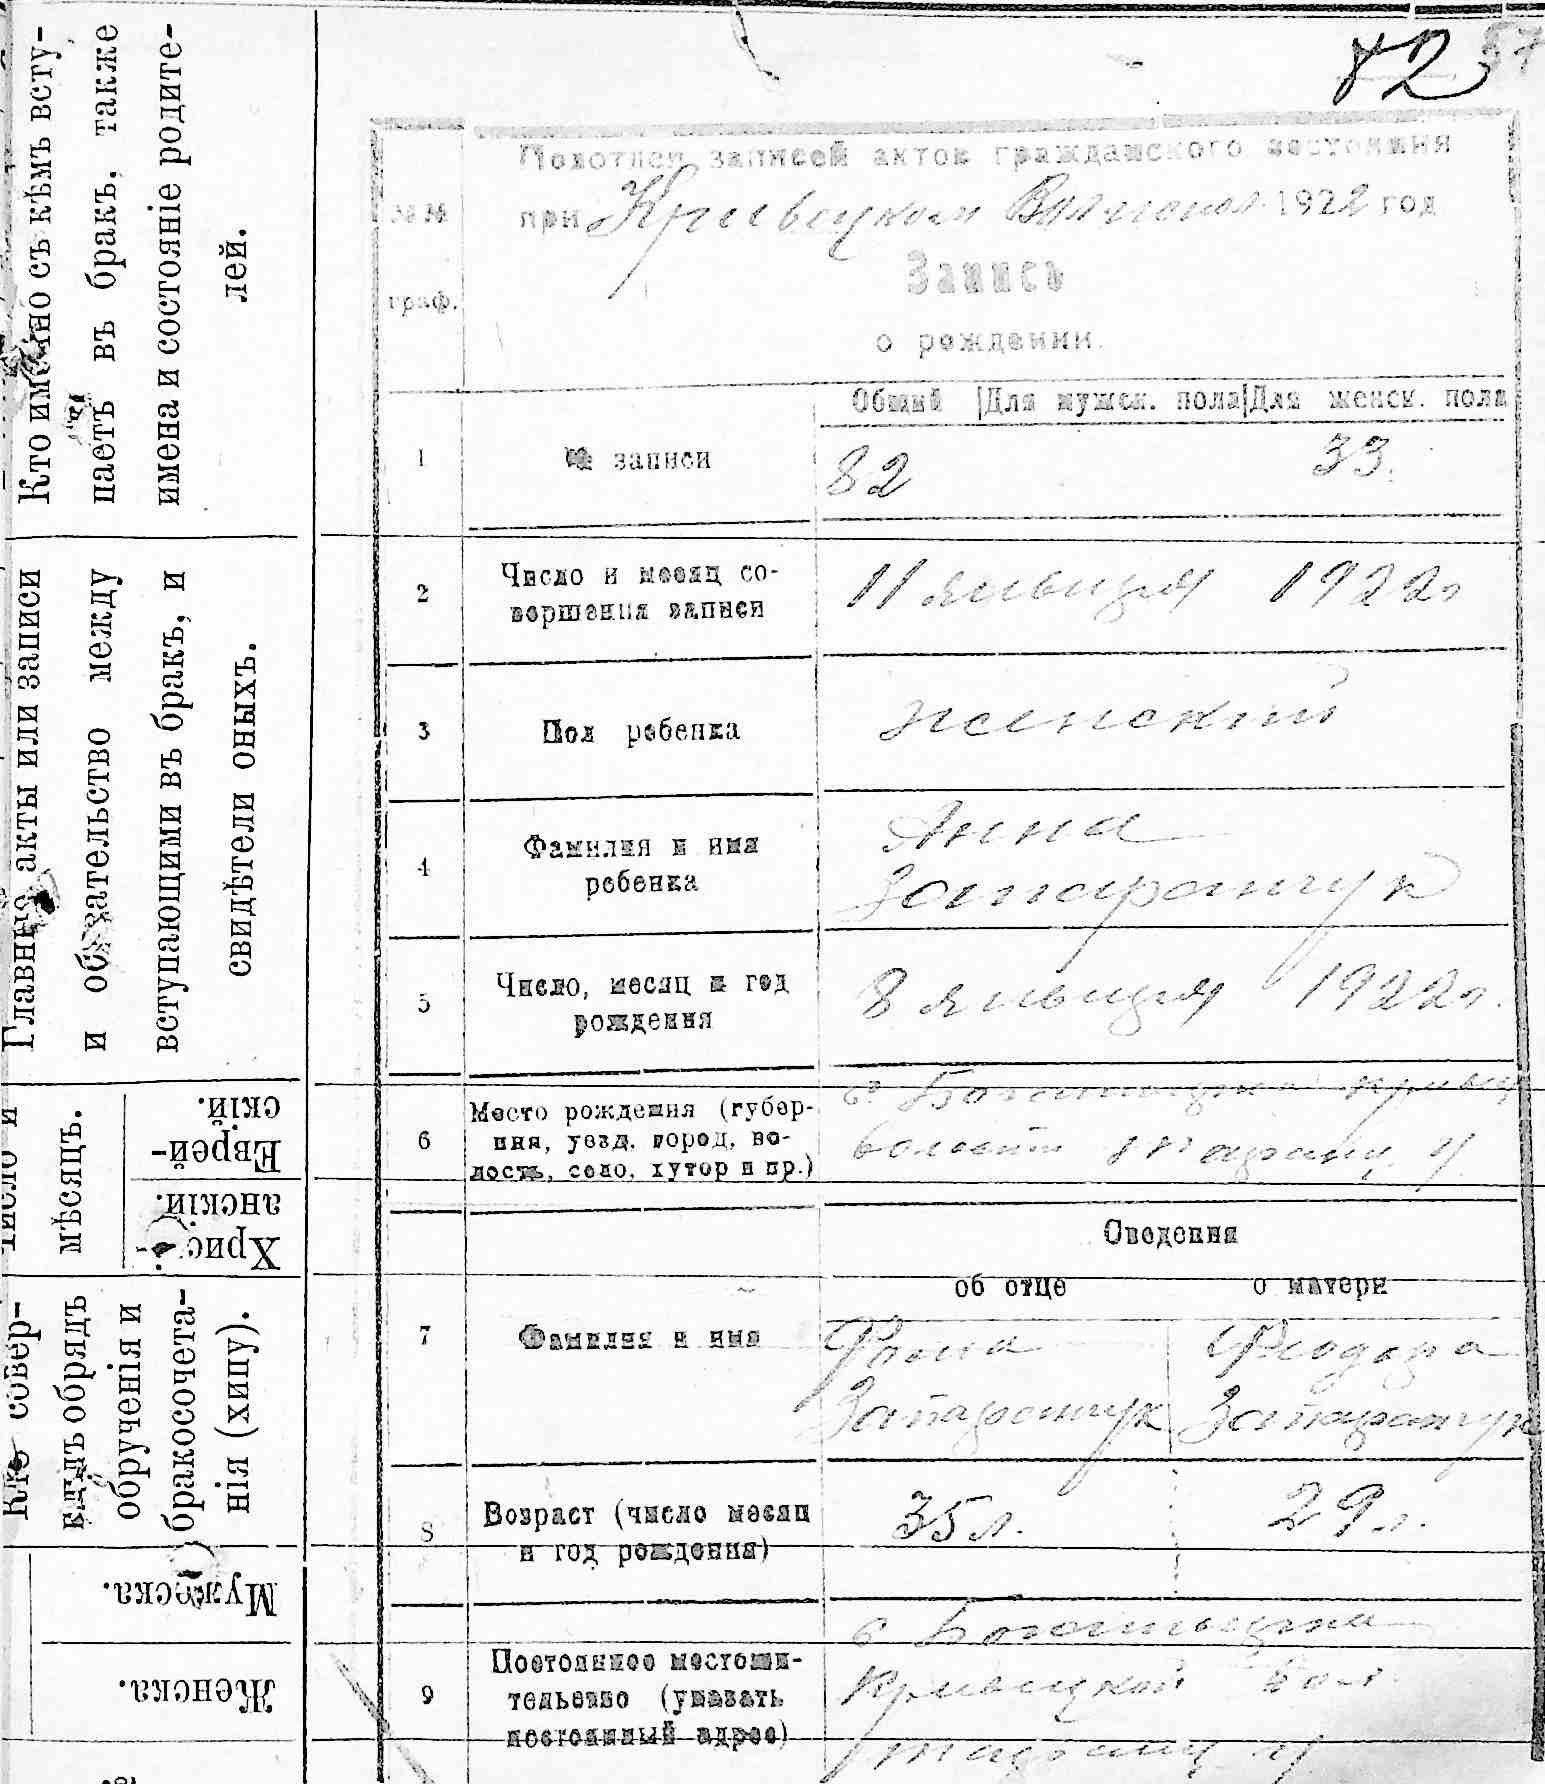 Кто именно съ кѣмъ всту-
паетъ въ бракъ, также
имена и состояніе родите-
лей.
Главные акты или записи
и обязательство между
вступающими въ бракъ, и
свидѣтели оныхъ.
Число и
мѣсяцъ.
Еврей-
скій.
Хрис
анскій.
Кто совер-
обрядъ
обрученія и
бракосочета-
нія (хипу).
Мужеска.
Женска.
82
57
записей актов гражданского состояния
при Кривецком 1922 год
№№
граф.
Запись
о рождении.
Общий Для мужск. пола Для женск. пола
1 № записи 82 33.
2 Число и месяц со-
вершения записи
11 января 1922г
3 Пол ребенка женский
4 Фамилия и имя
ребенка
Анна
Запаранчук
5 Число, месяц и год
рождения
8 января 1922г.
6 Место рождения (губер-
ния, уезд, город, во-
лость, село, хутор и пр.)
с.
у.
Сведения
об отце о матери
7 Фамилия и имя
Фома Феодора
Запаранчук Запаранчук
8 Возраст (число месяц
и год рождения)
35 л. 29 л.
9 Постоянное местожи-
тельство (указать
постоянный адрес)
с
Кривецкой вол.
у